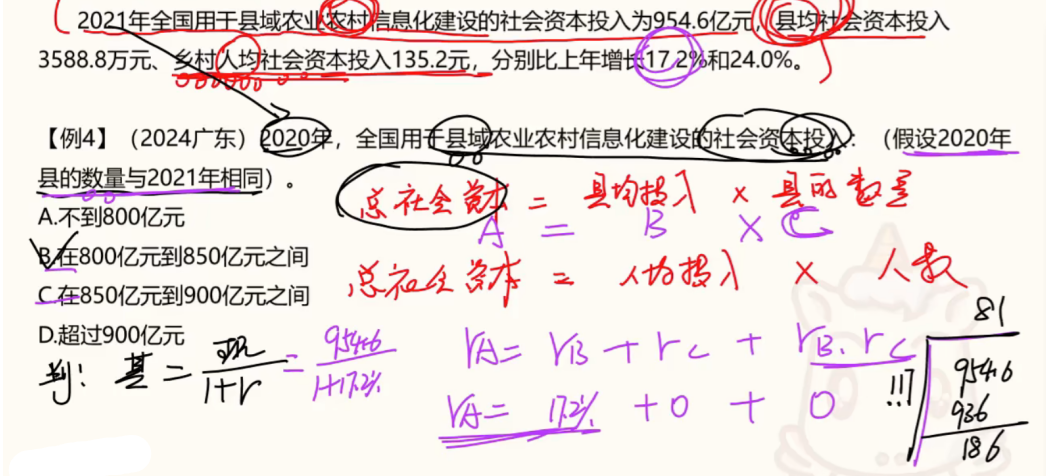 2021年全国用于县域农业农村信息化建设的社会资本投入为954.6亿元,县均社会资本投入
3588.8万元、乡村人均社会资本投入135.2元，分别比上年增长17.2%和24.0%。
【例4】（2024广东）2020年，全国用于县域农业农村信息化建设的社会资本投入：（假设2020年
县的数量与2021年相同）。
总社会资本 = 县均投入 × 县的数量
A.不到800亿元
A = B × C
B.在800亿元到850亿元之间
总社会资本 = 人均投入 × 人数
C.在850亿元到900亿元之间
D.超过900亿元
判: 基 = 现/1+r = 954.6/1+17.2%
rA = rB + rC + rB·rC
rA = 17.2% + 0 + 0
81
117
954.6
936
186